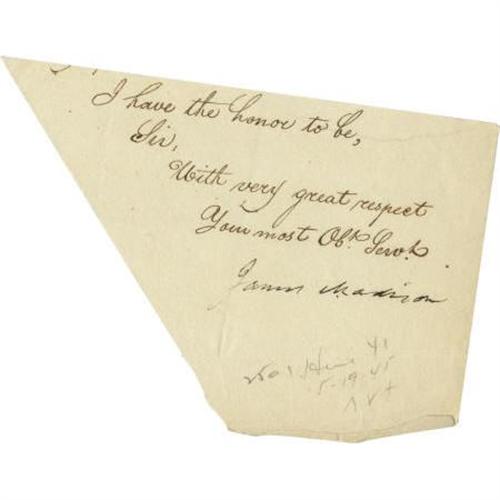 I have the honor to be,
Sir,
With very great respect
Your most Obt. Servt.
James Madison
41
5-19-45